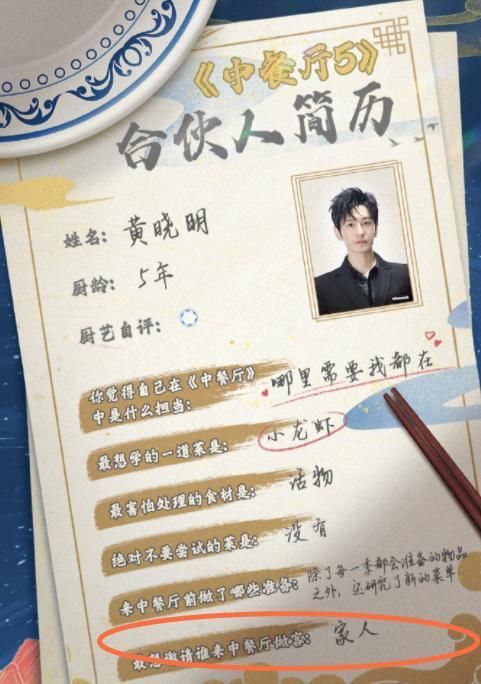 《中餐厅5》
合伙人简历
姓名: 黄晓明
厨龄: 5年
厨艺自评:
你觉得自己在《中餐厅》
中是什么担当: 哪里需要我都在
最想学的一道菜是: 小龙虾
最害怕处理的食材是: 活物
绝对不要尝试的菜是: 没有
来中餐厅前做了哪些准备: 除了每一季都会准备的物品
之外，还研究了新的菜单
最想邀请谁来中餐厅做客: 家人